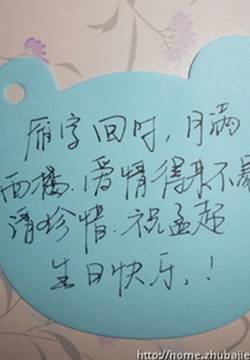 雁字回时，月满
西楼，爱情得来不易
请珍惜．祝孟超
生日快乐，！
http://home.zhubajie